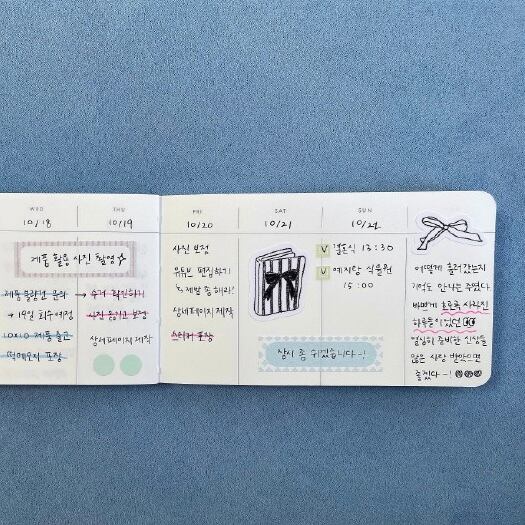 WED
10/18
THU
10/19
제품 활용 사진 촬영☆
제품 불량건 문의
→ 19일 회수예정
10x10 제품 출고
떡메모지 포장
→ 수거 확인하기
사진 옮기고 보정
상세페이지 제작
FRI
10/20
사진 보정
유튜브 편집하기
제발 좀 해라!
상세페이지 제작
스티커 포장
SAT
10/21
SUN
10/22
V 결혼식 13:30
V 예지랑 식물원
15:00
잠시 좀 쉬겠습니다-!
어떻게 흘러갔는지
기억도 안나는 주였다.
바쁘게 호로록 사라진
하루들이었던
열심히 준비한 신상들
많은 사랑 받았으면
좋겠다-!